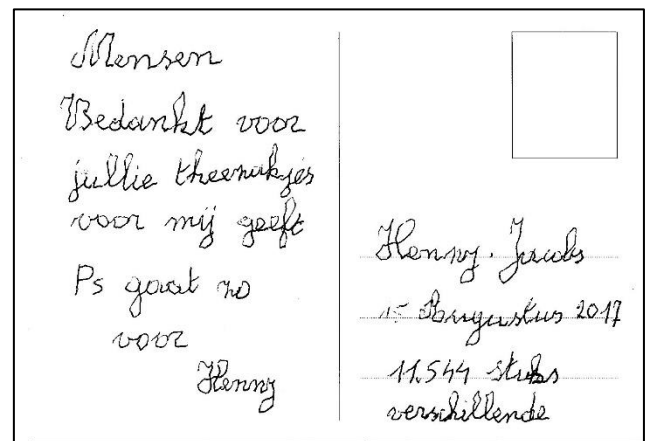 Mensen
Bedankt voor
jullie theezakjes
voor mij geeft
Ps gaat zo
voor
Henny
Henny. Jacobs
15 Augustus 2017
11.544 stuks
verschillende